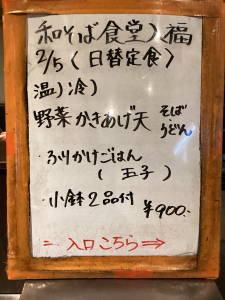 和そば食堂）福
2/5〈日替定食〉
温）冷）
野菜かきあげ天 そば・うどん
・ふりかけごはん
（玉子）
・小鉢2品付 ¥900.-
＝入口こちら⇒